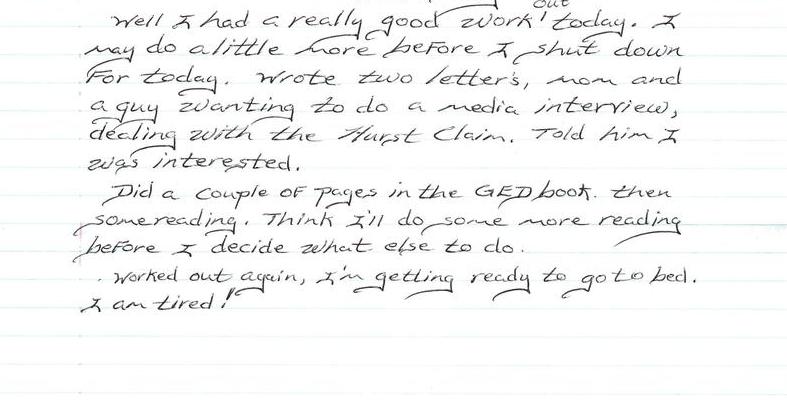 Well I had a really good work out today. I
may do a little more before I shut down
For today. Wrote two letter's, mom and
a guy wanting to do a media interview,
dealing with the Hurst Claim. Told him I
was interested.
Did a couple of pages in the GED book. then
some reading. Think I'll do some more reading
before I decide what else to do.
Worked out again, I'm getting ready to go to bed.
I am tired!